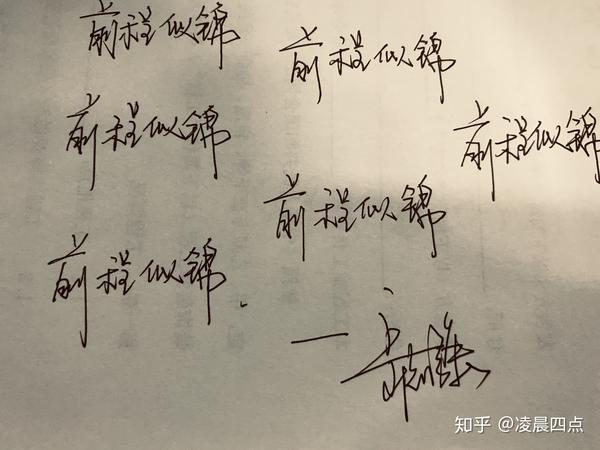 前程似锦
前程似锦
前程似锦
前程似锦
前程似锦
前程似锦
知乎 @凌晨四点